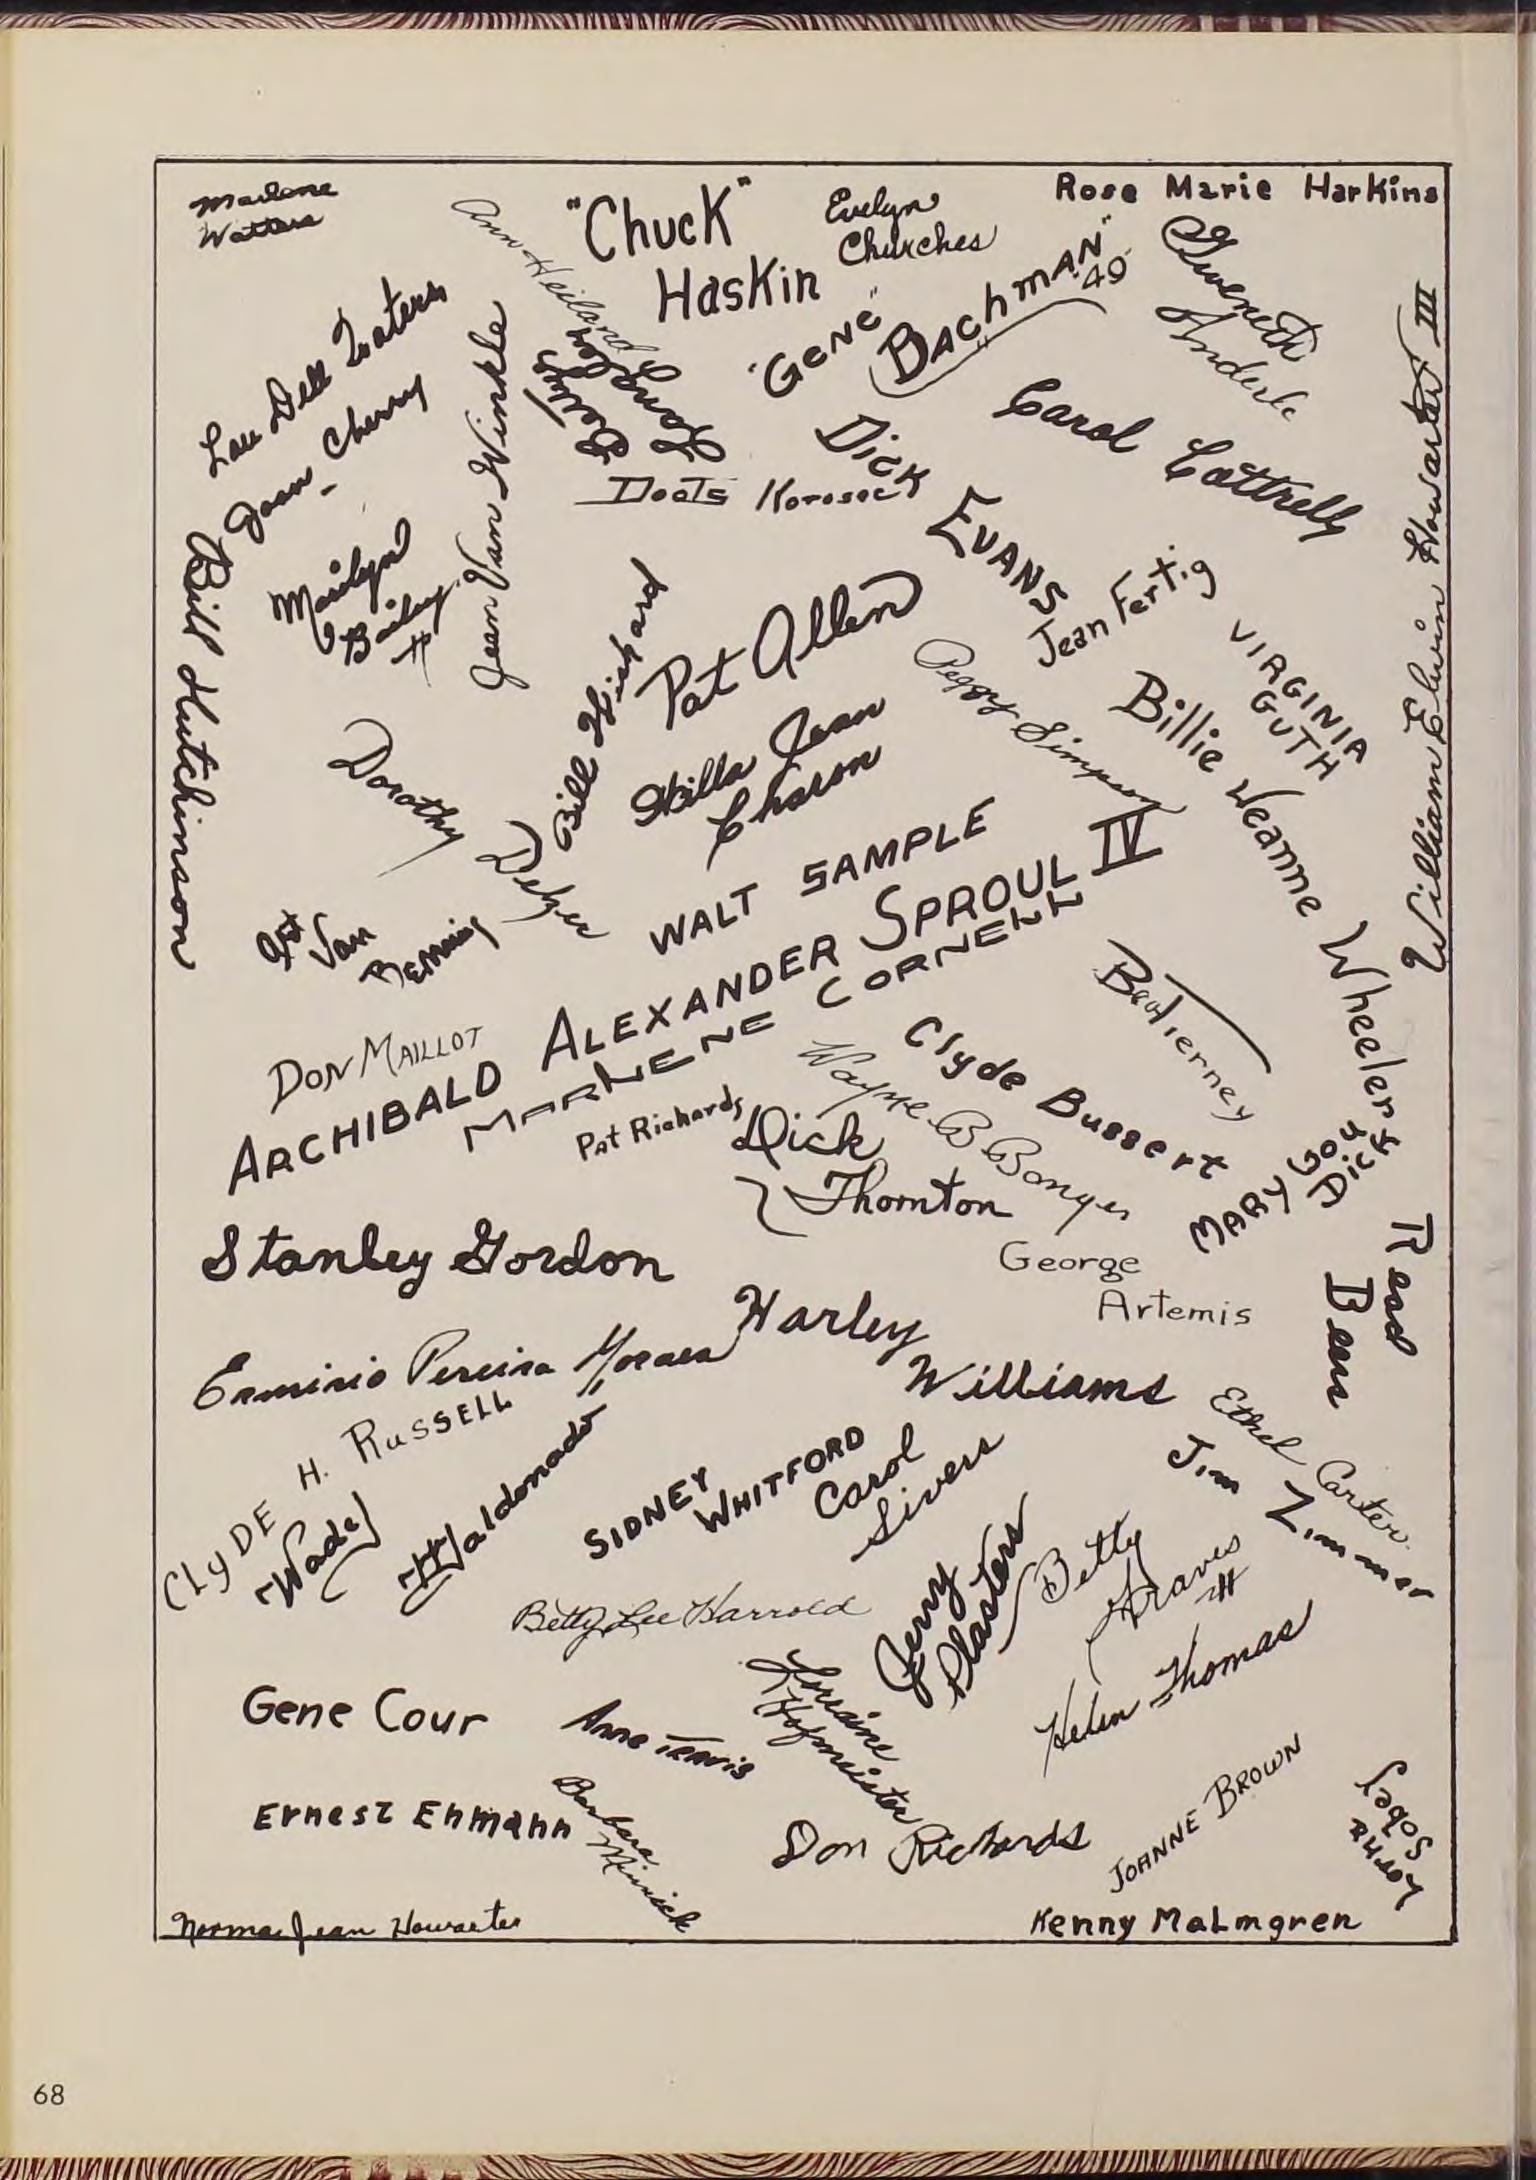 Marlene
Watters
Ann Heiland
"Chuck"
Haskin
Evelyn
Churches
Rose Marie Harkins
"Gene"
Bachman"
49
Gweneth
Anderle
Lou Dell Waters
Joan Cherry
Jean Van Winkle
Dick
Evans
Carol Cottrell
William Elwin Howarter III
Doots Korosec
Bill Hutchinson
Marilyn
Bailey
Jean Fertig
VIRGINIA
GUTH
Bill Hickard
Pat Allen
Peggy Simpson
Billie Jeanne Wheeler
Dorothy
Delzer
Willa Jean
Charon
WALT SAMPLE
Van
Benning
ARCHIBALD ALEXANDER SPROUL IV
MARNENE CORNELL
DON MAILLOT
Pat Richards
Bea Tierney
Clyde Bussert
Wayne B Bonyer
Dick
Thornton
MARY LOU
DICK
Stanley Gordon
George
Artemis
Read
Beer
Harley
Williams
Erminio Pereira Moraes
CLYDE H. RUSSELL
Wade
Maldonado
SIDNEY
WHITFORD
Carol
Sivers
Ethel Carter
Jim Zimmer
Betty Lee Harrold
Jerry
Plasters
Betty
Graves
Helen Thomas
Gene Cour
Anne Travis
Lorraine
Hofmeister
Ernest Ehmann
Barbara
Minick
Don Richards
JOANNE BROWN
Lorna
Sobey
Norma Jean Howarter
Kenny Malmgren
68